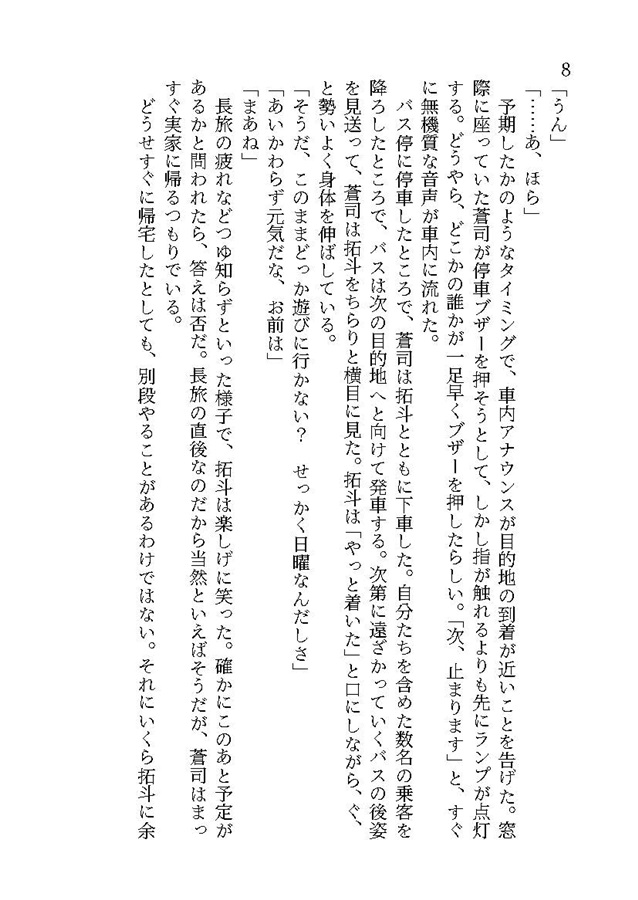 8
「うん」
「……あ、ほら」
　予期したかのようなタイミングで、車内アナウンスが目的地の到着が近いことを告げた。窓
際に座っていた蒼司が停車ブザーを押そうとして、しかし指が触れるよりも先にランプが点灯
する。どうやら、どこかの誰かが一足早くブザーを押したらしい。「次、止まります」と、すぐ
に無機質な音声が車内に流れた。
　バス停に停車したところで、蒼司は拓斗とともに下車した。自分たちを含めた数名の乗客を
降ろしたところで、バスは次の目的地へと向けて発車する。次第に遠ざかっていくバスの後姿
を見送って、蒼司は拓斗をちらりと横目に見た。拓斗は「やっと着いた」と口にしながら、ぐ、
と勢いよく身体を伸ばしている。
「そうだ、このままどっか遊びに行かない？　せっかく日曜なんだしさ」
「あいかわらず元気だな、お前は」
「まあね」
　長旅の疲れなどつゆ知らずといった様子で、拓斗は楽しげに笑った。確かにこのあと予定が
あるかと問われたら、答えは否だ。長旅の直後なのだから当然といえばそうだが、蒼司はまっ
すぐ実家に帰るつもりでいる。
　どうせすぐに帰宅したとしても、別段やることがあるわけではない。それにいくら拓斗に余